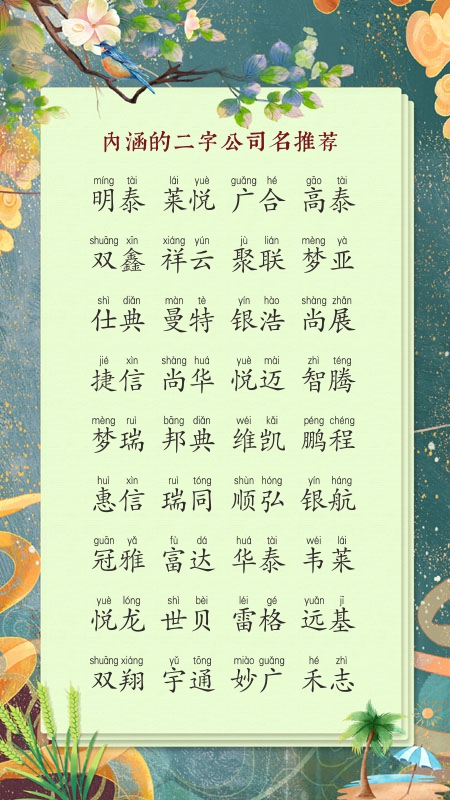 内涵的二字公司名推荐
míng tài lái yuè guǎng hé gāo tài
明泰 莱悦 广合 高泰
shuāng xīn xiáng yún jù lián mèng yà
双鑫 祥云 聚联 梦亚
shì diǎn màn tè yín hào shàng zhǎn
仕典 曼特 银浩 尚展
jié xìn shàng huá yuè mài zhì téng
捷信 尚华 悦迈 智腾
mèng ruì bāng diǎn wéi kǎi péng chéng
梦瑞 邦典 维凯 鹏程
huì xìn ruì tóng shùn hóng yín háng
惠信 瑞同 顺弘 银航
guān yǎ fù dá huá tài wéi lái
冠雅 富达 华泰 韦莱
yuè lóng shì bèi léi gé yuǎn jī
悦龙 世贝 雷格 远基
shuāng xiáng yǔ tōng miào guǎng hé zhì
双翔 宇通 妙广 禾志